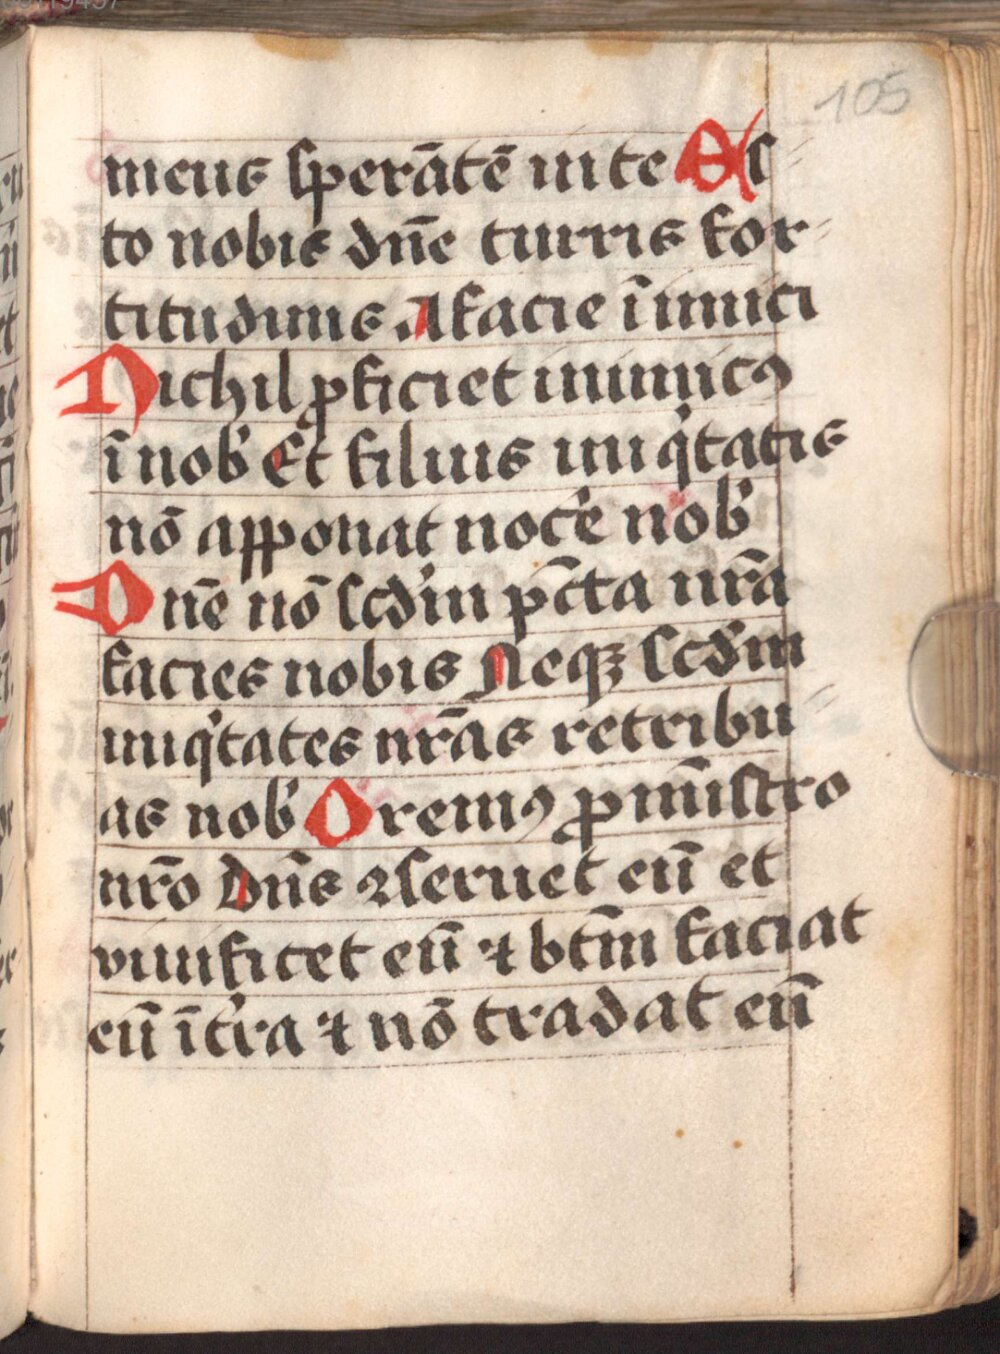 105
meus sperātē in te Es
to nobis dn̄e turris for
titudinis A facie īimici
Nichil ꝓficiet inimicꝰ
ī nob̛ Et filius iniqͥtatis
nō apponat noce̛ nob̛
Dn̄e nō scd̛m pc̄ta nr̄a
facies nobis Neqꝫ scd̛m
iniqͥtates nr̄as retribu
as nob̛ Oremꝰ ꝓ mīistro
nr̄o Dn̄s ꝯseruet eū et
viuificet eū ⁊ bt̄m faciat
eū ī t̛ra ⁊ nō tradat eū